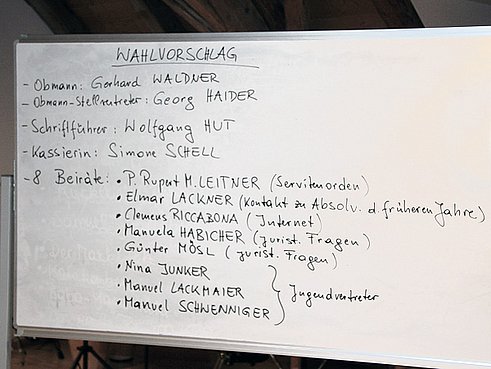 WAHLVORSCHLAG
- Obmann: Gerhard WALDNER
- Obmann-Stellvertreter: Georg HAIDER
- Schriftführer: Wolfgang HUT
- Kassierin: Simone SCHELL
- 8 Beiräte: • P. Rupert M. LEITNER (Servitenorden)
• Elmar LACKNER (Kontakt zu Absolv. d. früheren Jahre)
• Clemens RICCABONA (Internet)
• Manuela HABICHER (jurist. Fragen)
• Günter MÖSL (jurist. Fragen)
• Nina JUNKER
• Manuel LACKMAIER } Jugendvertreter
• Manuel SCHWENNIGER